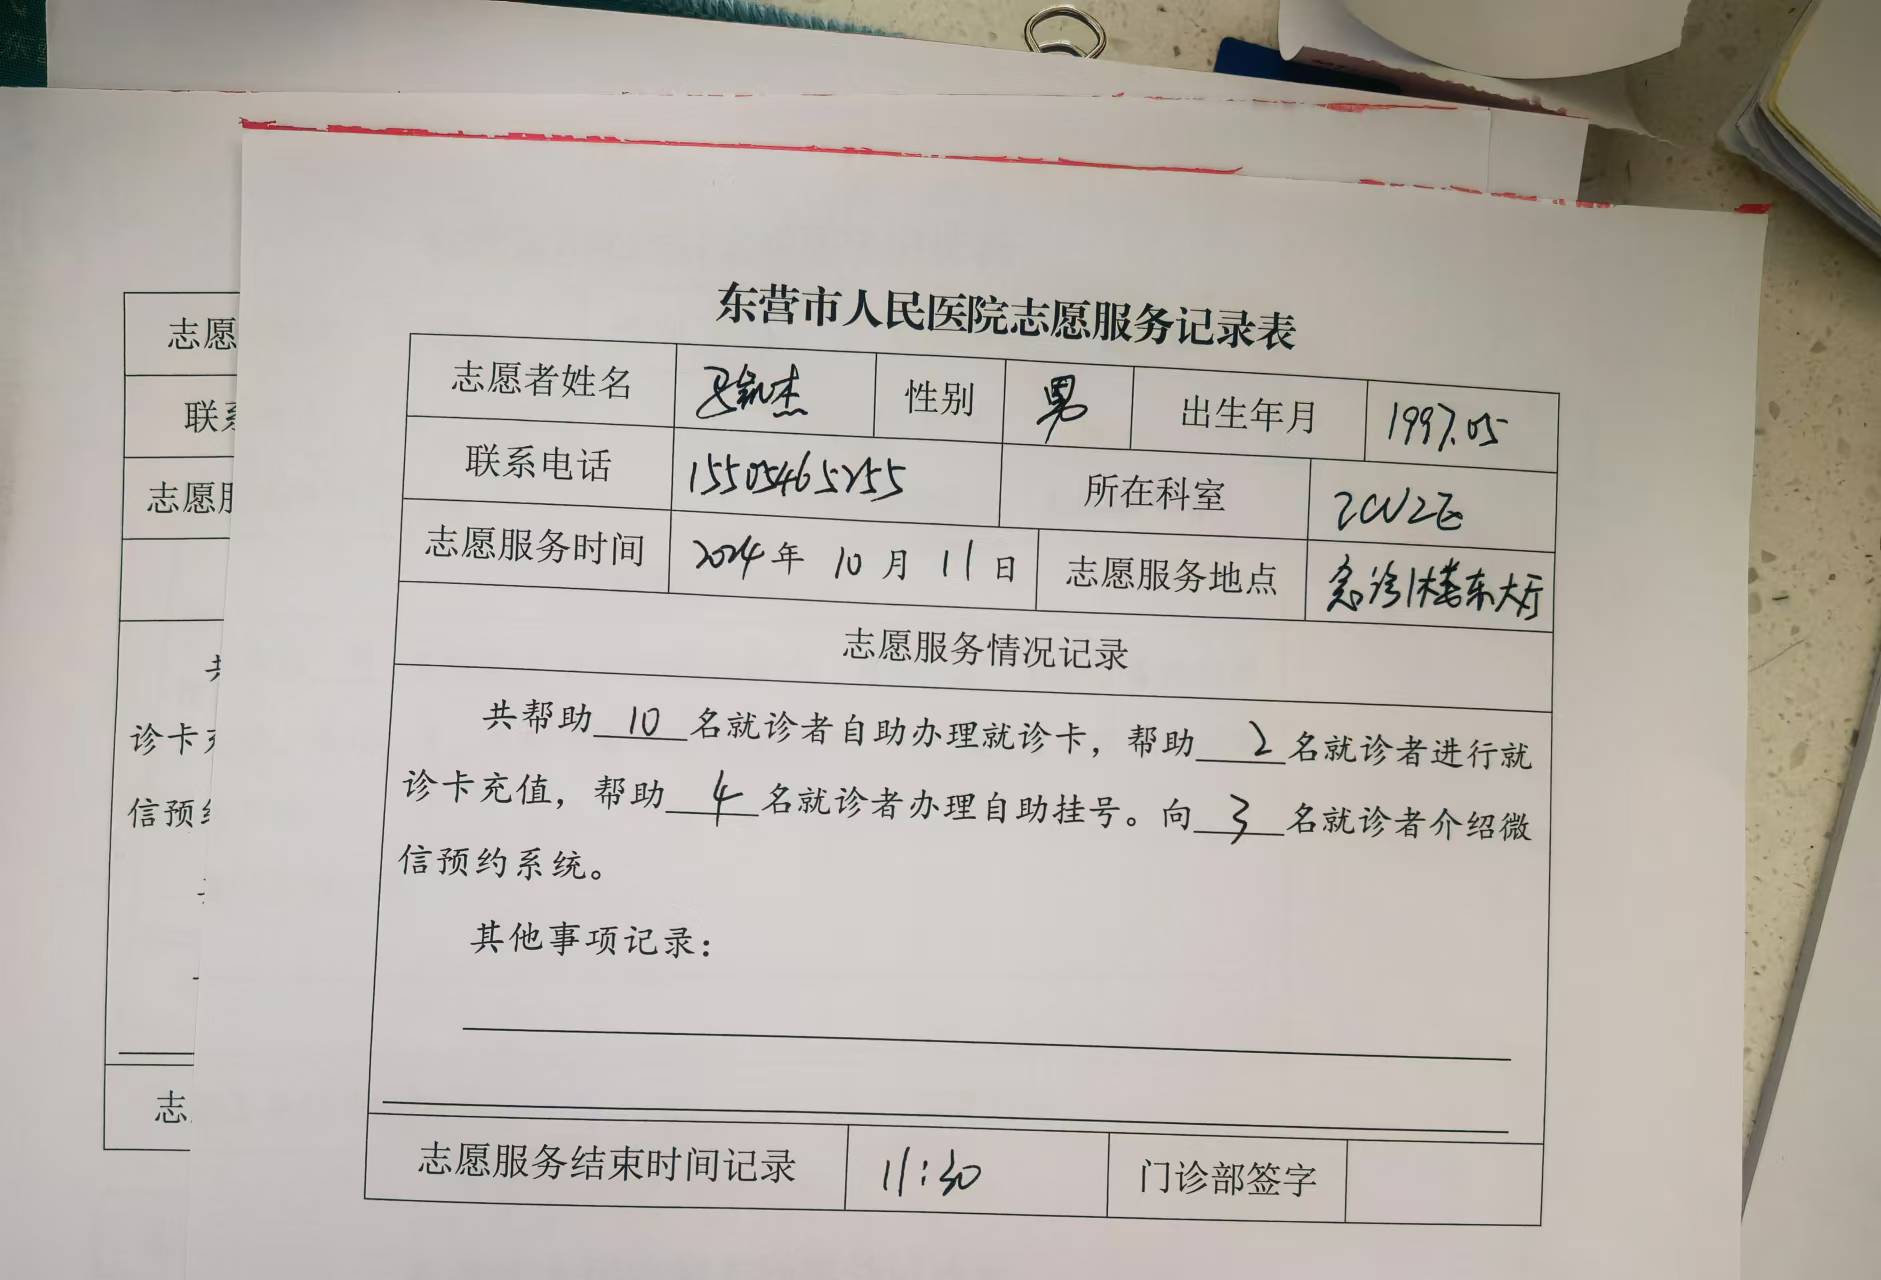 东营市人民医院志愿服务记录表
志愿者姓名 性别 男 出生年月 1997.05
联系电话 15505465255 所在科室 ICU2区
志愿服务时间 2024年 10月 11日 志愿服务地点 急诊1楼东大厅
志愿服务情况记录
共帮助 10 名就诊者自助办理就诊卡，帮助 2 名就诊者进行就
诊卡充值，帮助 4 名就诊者办理自助挂号。向 3 名就诊者介绍微
信预约系统。
其他事项记录：
志愿服务结束时间记录 11:30 门诊部签字
志愿
联系
志愿服
共
诊卡充
信预约
志